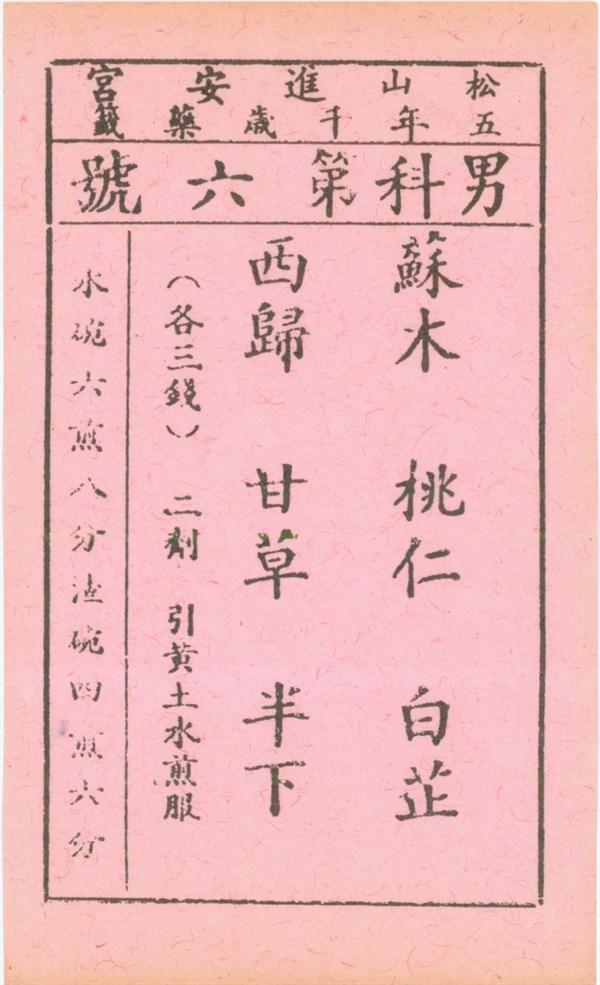 松山進安宮
五年千歲藥籤
男科第六號
蘇木 桃仁 白芷
西歸 甘草 半下
（各三錢） 二劑 引黃土水煎服
水碗六煎八分渣碗四煎六分